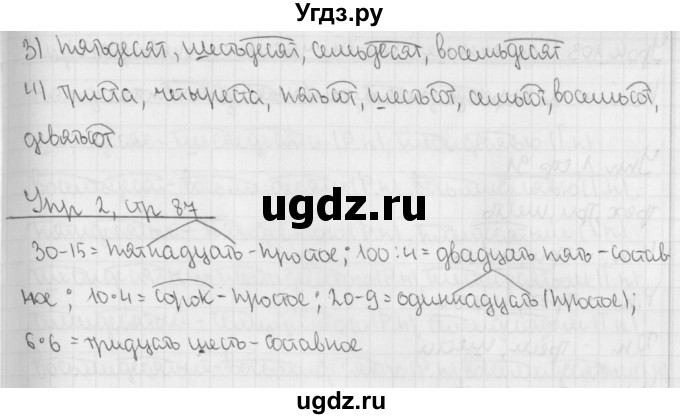 Угдз.ру
3) пятьдесят, шестьдесят, семьдесят, восемьдесят
4) триста, четыреста, пятьсот, шестьсот, семьсот, восемьсот,
девятьсот
ugdz.ru
Упр 2, стр 87
30-15=пятнадцать-простое; 100:4=двадцать пять-состав
ное; 10·4=сорок-простое; 20-9=одиннадцать(простое);
6·6=тридцать шесть-составное
ugdz.ru